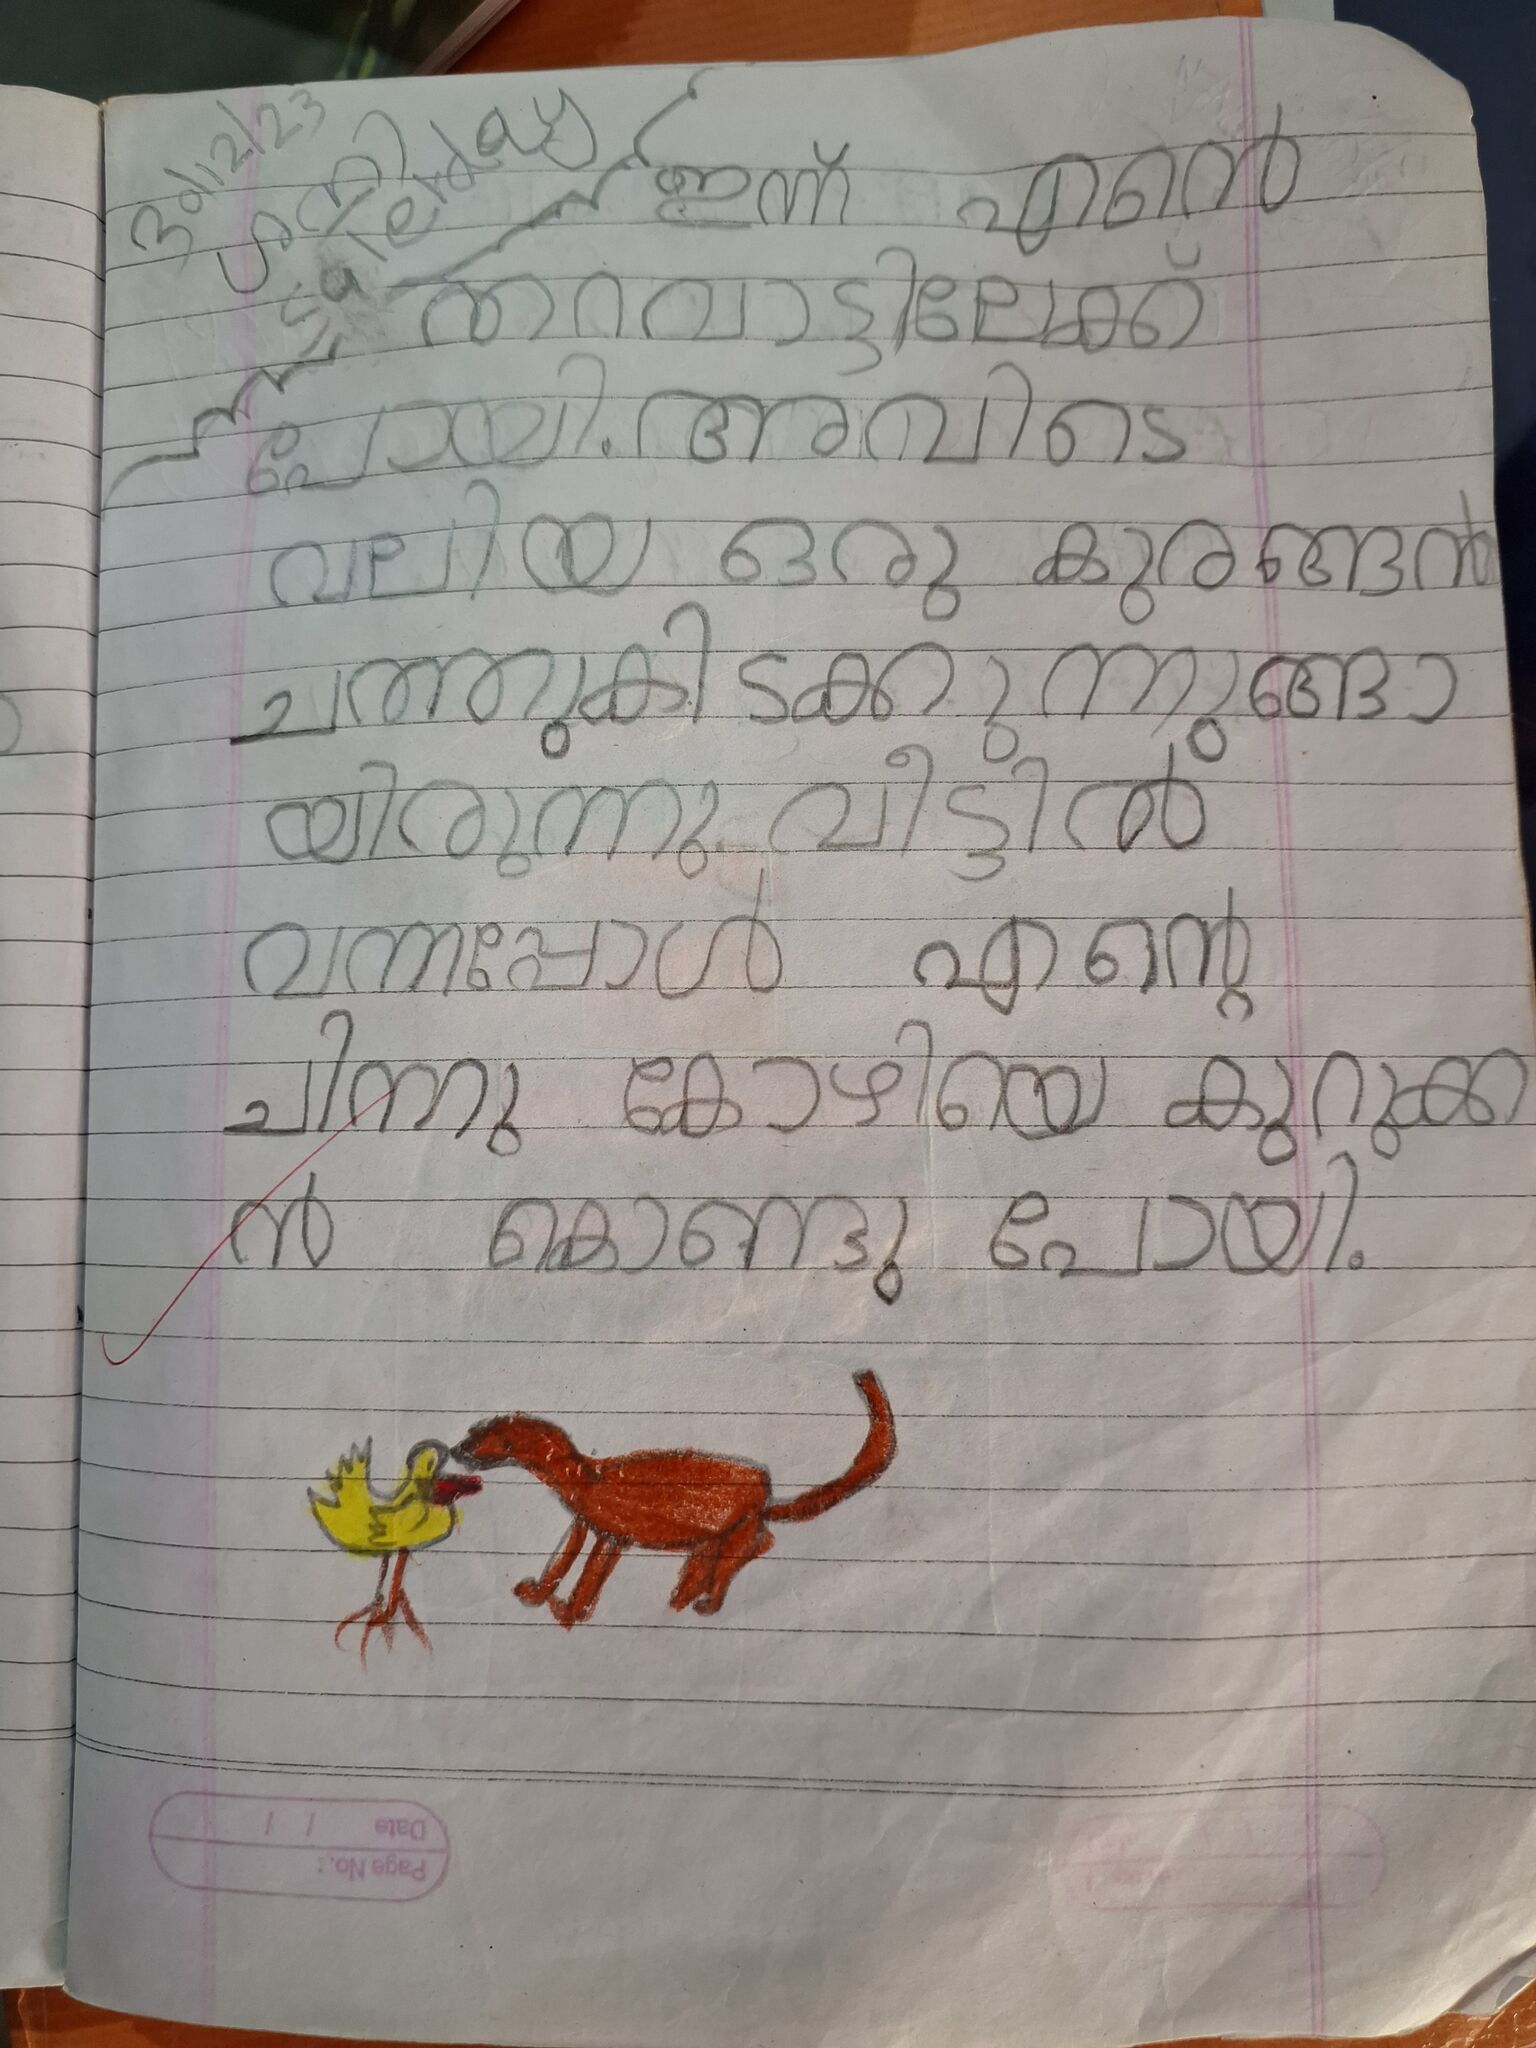 30/12/23
ശനി
Saterday
ഇന്ന് എൻെ
തറവാട്ടിലേക്ക്
പോയി. അവിടെ
വലിയ ഒരു കുരങ്ങൻ
ചത്തുകിടക്കുന്നുങ്ങാ
യിരുന്നു. വീട്ടിൽ
വന്നപ്പോൾ എൻ്റെ
ചിന്നു കോഴിയെ കുറുക്ക
ൻ കൊണ്ടു പോയി.
Page No.:
Date / /